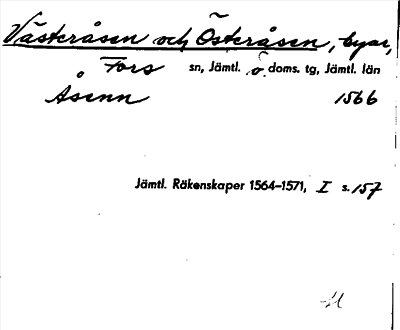 Västeråsen och Österåsen, byar,
Fors sn, Jämtl. ö. doms. tg, Jämtl. län
Åsenn 1566
Jämtl. Räkenskaper 1564-1571, I s. 157